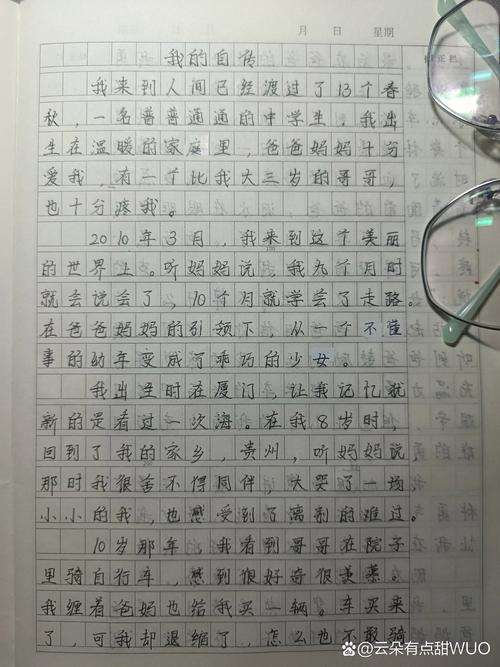 月 日 星期
我的自传
我来到人间已经渡过了13个春
秋，一名普普通通的中学生，我出
生在温暖的家庭里，爸爸妈妈十分
爱我，有一个比我大三岁的哥哥，
也十分疼我。
2010年3月，我来到这个美丽
的世界上。听妈妈说，我九个月时
就会说会了，10个月就学会了走路。
在爸爸妈妈的引领下，从一个不懂
事的幼年变成了乖巧的少女。
我出生时在厦门，让我记忆犹
新的是看过一次海。在我8岁时，
回到了我的家乡，贵州，听妈妈说，
那时我很舍不得同伴，大哭了一场，
小小的我，也感受到了离别的难过。
10岁那年，我看到哥哥在院子
里骑自行车，感到很好奇很羡慕。
我缠着爸妈也给我买一辆。车买来
了，可我却退缩了，怎么也不敢骑
@云朵有点甜WUO